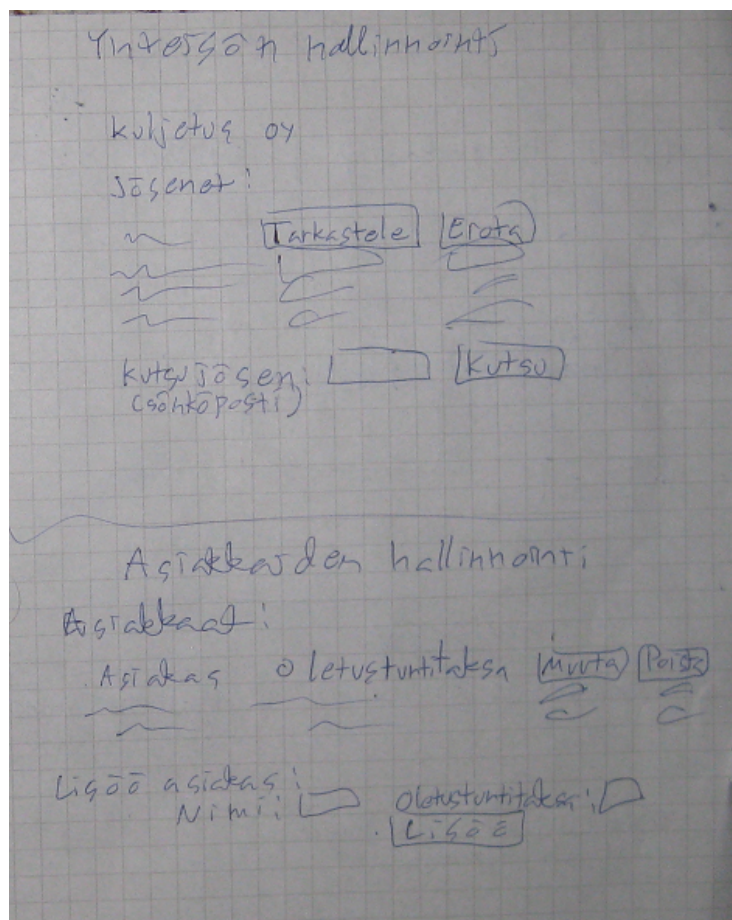 Yhteisön hallinnointi
Kuljetus oy
Jäsenet:
Tarkastele Erota
Kutsu jäsen: Kutsu
(sähköposti)
Asiakkaiden hallinnointi
Asiakkaat:
Asiakas Oletustuntitaksa Muuta Poista
Lisää asiakas:
Nimi: Oletustuntitaksa:
Lisää